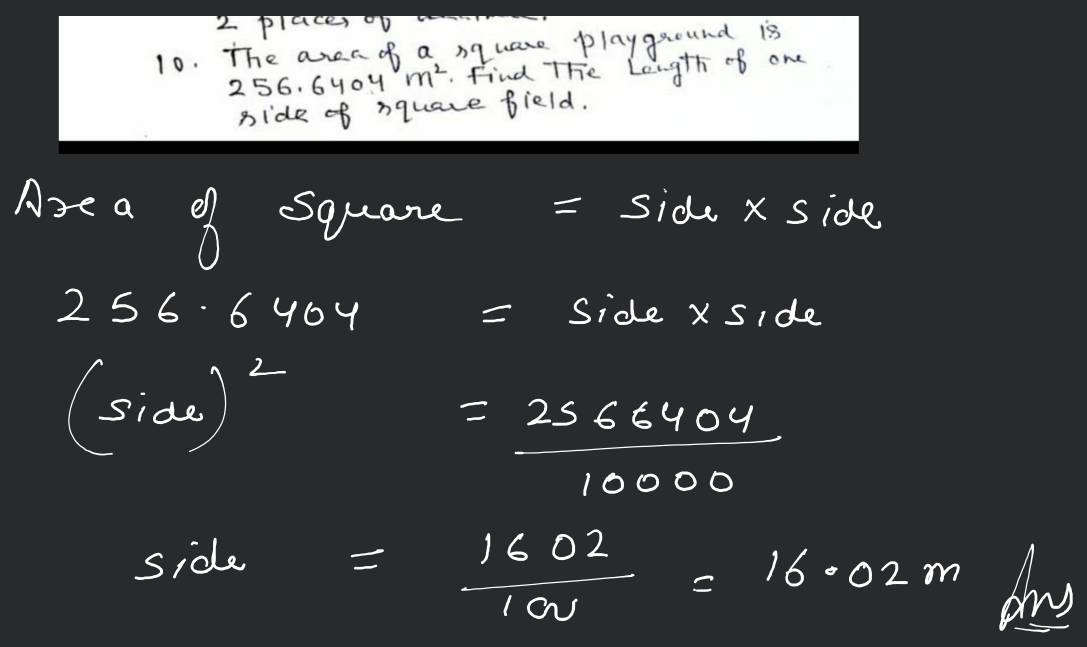 2 places of
10. The area of a square playground is
256.6404 m². Find The Length of one
side of square field.
Area of Square = Side x side
256.6404 = Side x side
(side)² = 2566404
10000
side = 1602
100
= 16.02 m Ans